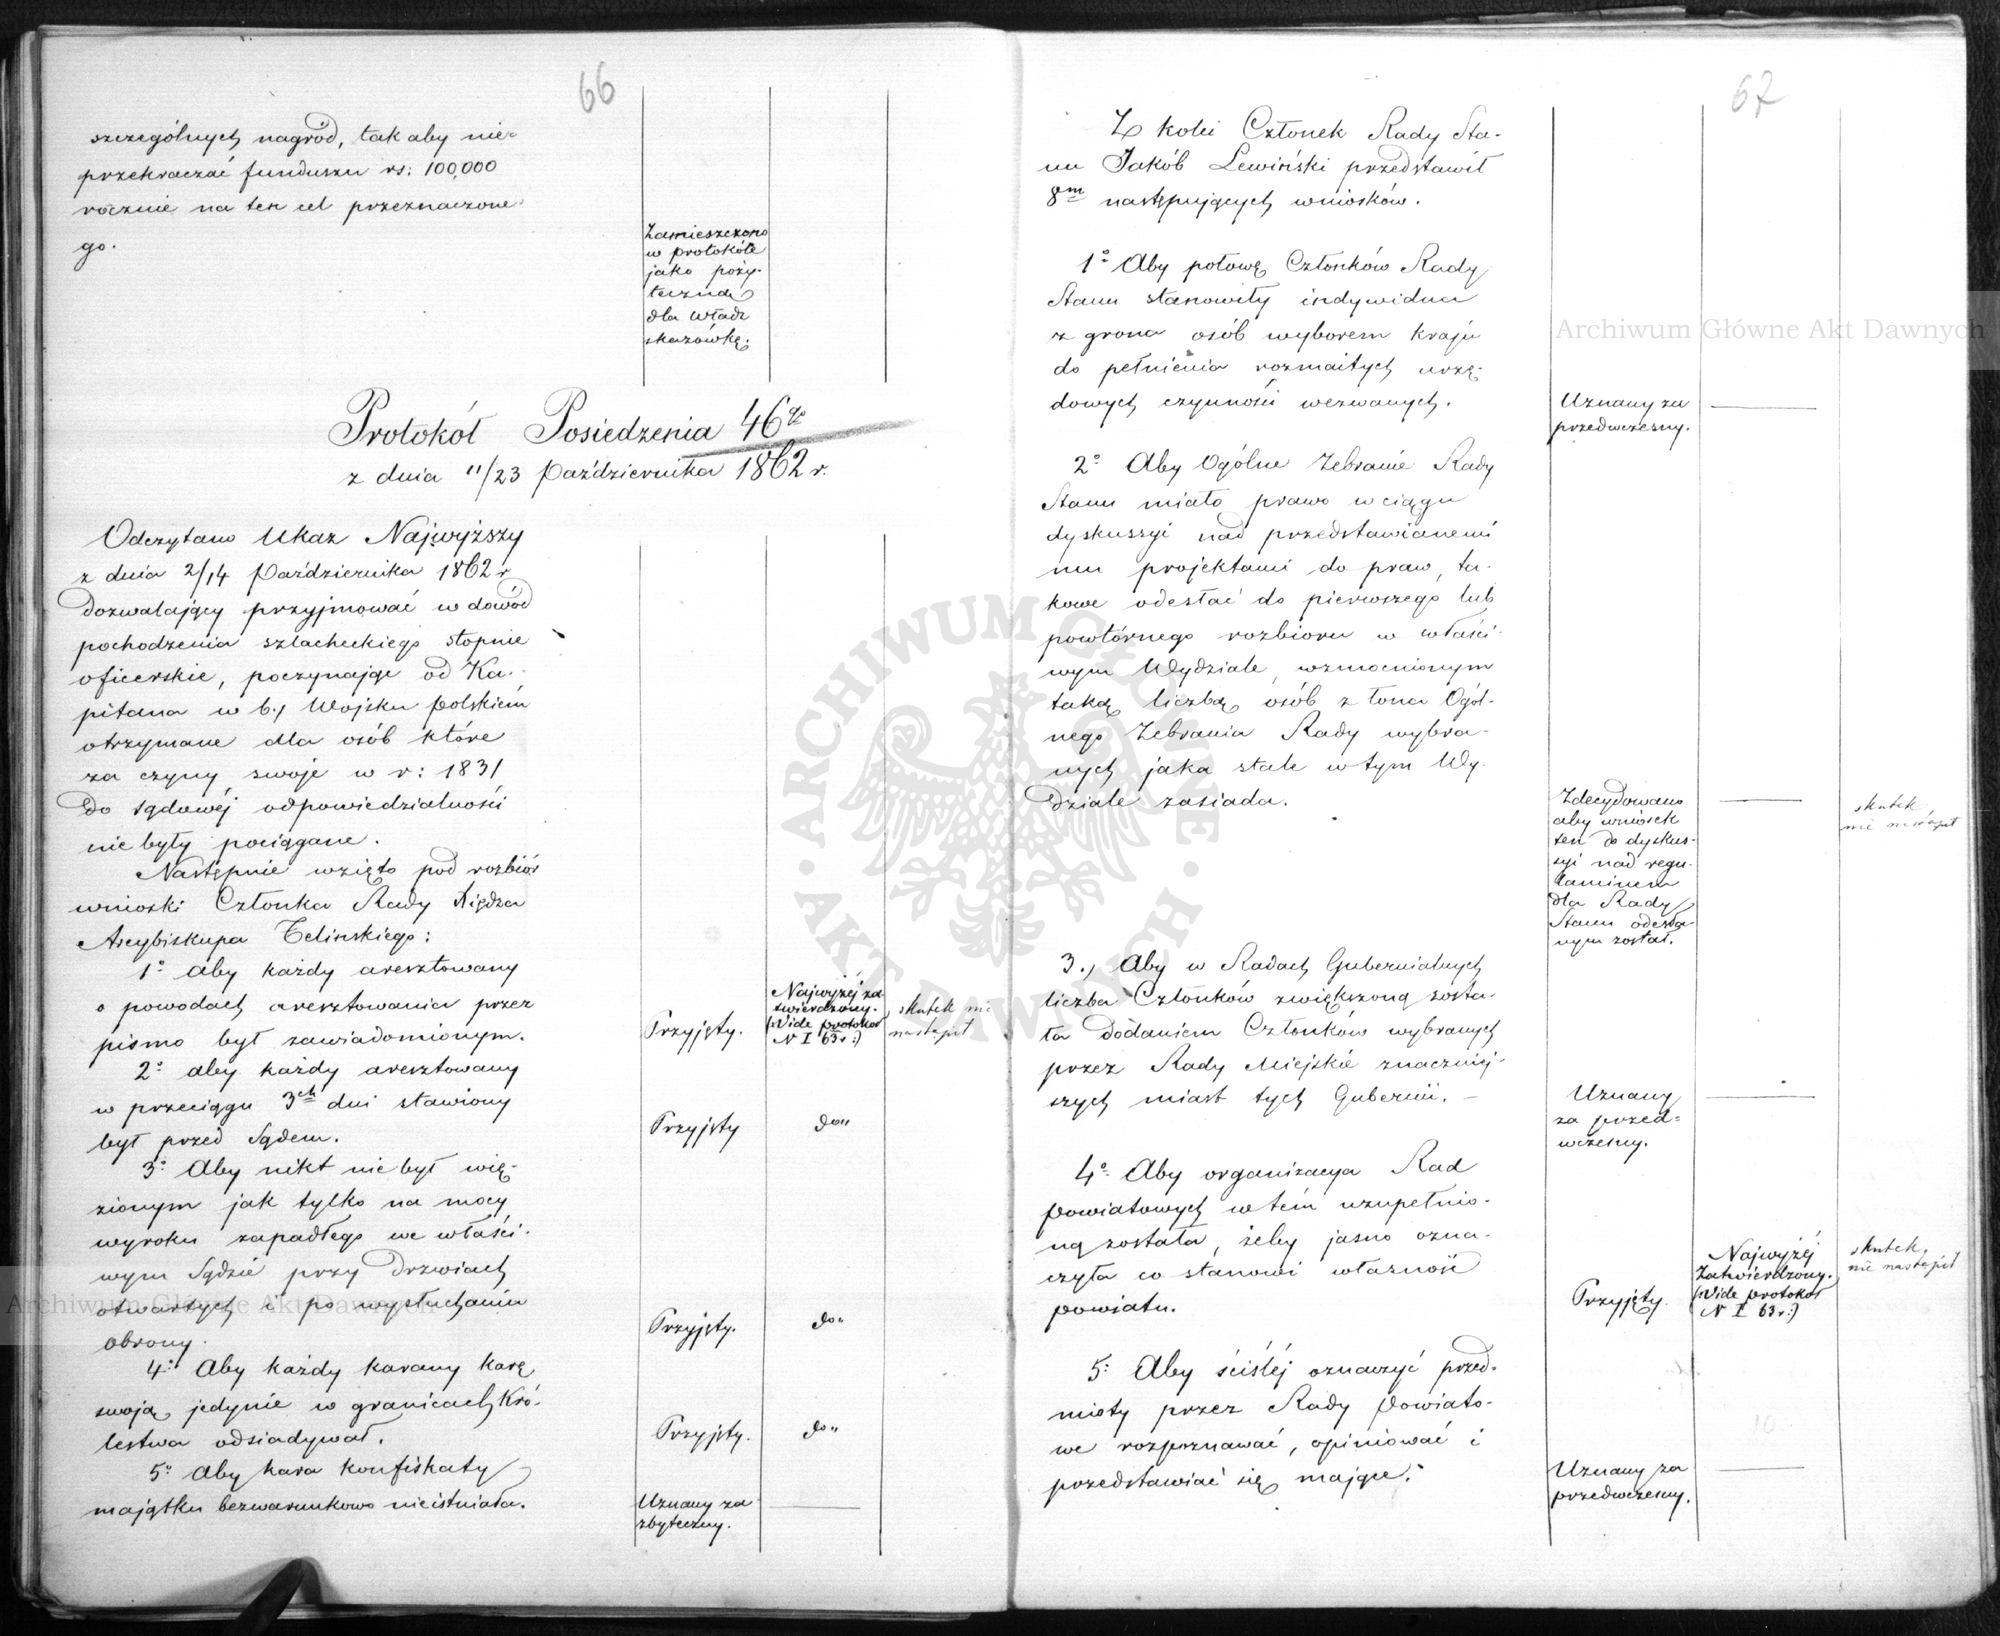 66
szczególnych nagród, tak aby nie
przekraczać funduszu rs: 100,000
rocznie na ten cel przeznaczone-
go.
Zamieszczono
w protokóle
jako poży-
teczną
dla władz
skazówkę.
Protokół Posiedzenia 46go
z dnia 11/23 Października 1862 r.
Odczytano Ukaz Najwyższy
z dnia 2/14 Października 1862 r
dozwalający przyjmować w dowód
pochodzenia szlacheckiego stopnie
oficerskie, poczynając od Ka-
pitana w b., Wojsku polskiem
otrzymane dla osób które
za czyny swoje w r: 1831
do sądowéj odpowiedzialności
nie były pociągane.
Następnie wzięto pod rozbiór
wnioski Członka Rady Księdza
Arcybiskupa Felinskiego:
1o aby każdy aresztowany
o powodach aresztowania przez
pismo był zawiadomionym.
Przyjęty.
Najwyżéj za-
twierdzony.
(:Vide protokół
N I 63 r:)
skutek nie
nastąpił
2o aby każdy aresztowany
w przeciągu 3ch dni stawiony
był przed Sądem.
Przyjęty
do"
3o Aby nikt nie był wię-
zionym jak tylko na mocy
wyroku zapadłego we właści-
wym Sądzie przy drzwiach
otwartych i po wysłuchaniu
obrony.
Przyjęty.
do"
4o Aby każdy karany karę
swoją jedynie w granicach Kró-
lestwa odsiadywał.
Przyjęty.
do"
5o Aby kara konfiskaty
majątku bezwarunkowo nieistniała.
Uznany za
zbyteczny.
67
Z kolei Członek Rady Sta-
nu Jakób Lewiński przedstawił
8m następujących wniosków.
1o Aby połowę Członków Rady
Stanu stanowiły indywidua
z grona osób wyborem kraju
do pełnienia rozmaitych urzę-
dowych czynności wezwanych.
Uznany za
przedwczesny.
2o Aby Ogólne Zebranie Rady
Stanu miało prawo w ciągu
dyskussyi nad przedstawianemi
mu projektami do praw, ta-
kowe odesłać do pierwszego lub
powtórnego rozbioru w właści-
wym Wydziale, wzmocnionym
taką liczbą osób z łona Ogól-
nego Zebrania Rady wybra-
nych jaka stale w tym Wy-
dziale zasiada.
Zdecydowano
aby wniosek
ten do dyskus-
syi nad regu-
laminem
dla Rady
Stanu odesła-
nym został.
skutek
nie nastąpił
3., Aby w Radach Gubernialnych
liczba Członków zwiększoną zosta-
ła dodaniem Członków wybranych
przez Rady Miejskie znaczniej-
szych miast tych Gubernii. –
Uznany
za przed-
wczesny.
4o Aby organizacya Rad
powiatowych w tém uzupełnio-
ną została, żeby jasno ozna-
czyła co stanowi własność
powiatu.
Przyjęty.
Najwyżéj
Zatwierdzony.
(:Vide protokół
N I 63 r:)
skutek
nie nastąpił
5o Aby ściśléj oznaczyć przed-
mioty przez Rady Powiato-
we rozpoznawać, opiniować i
przedstawiać się mające.
Uznany za
przedwczesny.
Archiwum Główne Akt Dawnych
Archiwum Główne Akt Dawnych
ARCHIWUM GŁÓWNE AKT DAWNYCH